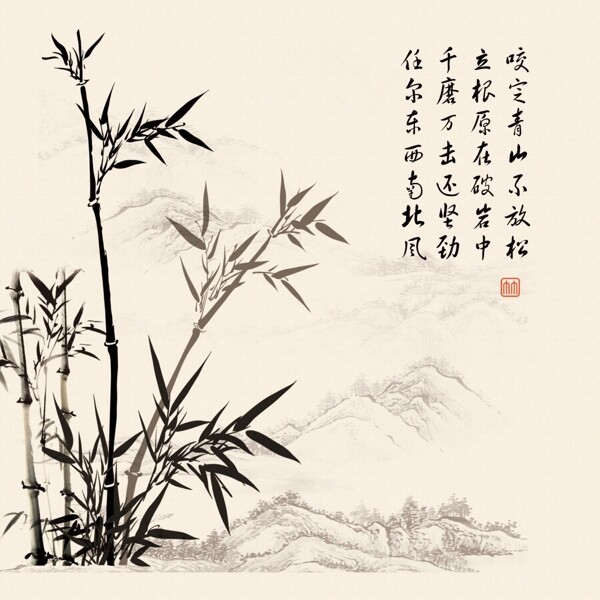 咬定青山不放松
立根原在破岩中
千磨万击还坚劲
任尔东西南北风
竹